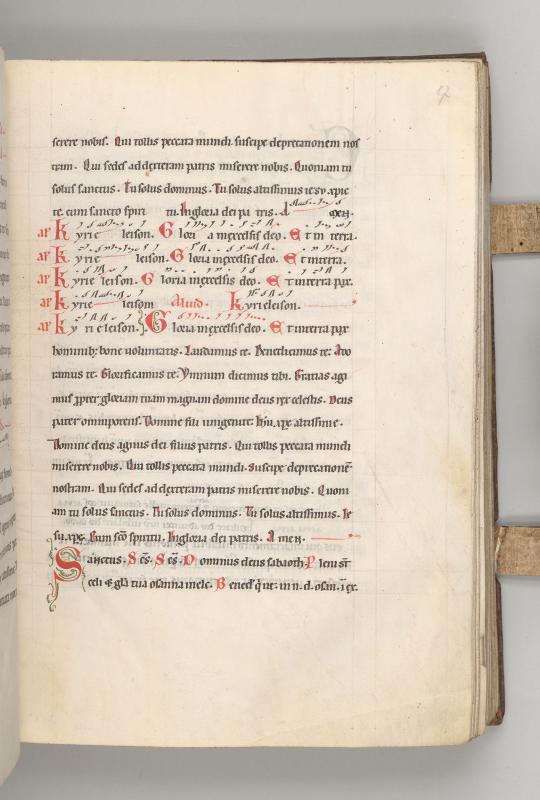 serere nobis. Qui tollis peccata mundi. suscipe deprecationem nos
tram. Qui sedes ad dexteram patris miserere nobis. Quoniam tu
solus sanctus. Tu solus dominus. Tu solus altissimus iesu xpie
te. cum sancto spiri tu. In gloria dei pa tris. A men.
ar Kyrie leison. Glori a in excelsis deo. Et in terra.
ar Kyrie leison. Gloria in excelsis deo. Et in terra.
ar Kyrie leison. Gloria in excelsis deo. Et in terra pax.
ar Kyrie leisom Kyrieleison.
ar Kyrieleison. Gloria in excelsis deo. Et in terra pax
hominib; bone voluntatis. Laudamus te. Benedicimus te. Ado
ramus te. Glorificamus te. Ymnum dicimus tibi. Gratias agi
mus propter gloriam tuam magnam domine deus rex celestis. Deus
pater omnipotens. Domine fili unigenite. ihu. xpe altissime.
Domine deus agnus dei filius patris. Qui tollis peccata mundi
miserere nobis. Qui tollis peccata mundi. suscipe deprecatione
nostram. Qui sedes ad dexteram patris miserere nobis. Quoni
am tu solus sanctus. Tu solus dominus. Tu solus altissimus. Ie
su. xpe. Cum sco spiritu. In gloria dei patris. A men.
Sanctus. Scs. Scs. Dominus deus sabaoth. Pleni st
celi & gla tua osanna in elc. Bened q ue. in n. d. osan. i ex.